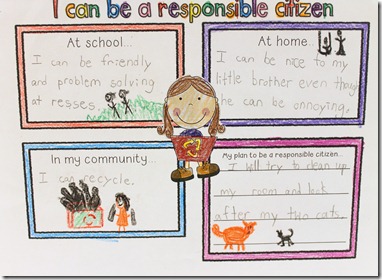 I can be a responsible citizen
At school...
I can be friendly
and problem solving
at resses.
At home...
I can be nice to my
little brother even though
he can be annoying.
In my community...
I can recycle.
My plan to be a responsible citizen...
I will try to clean up
my room and look
after my two cats.